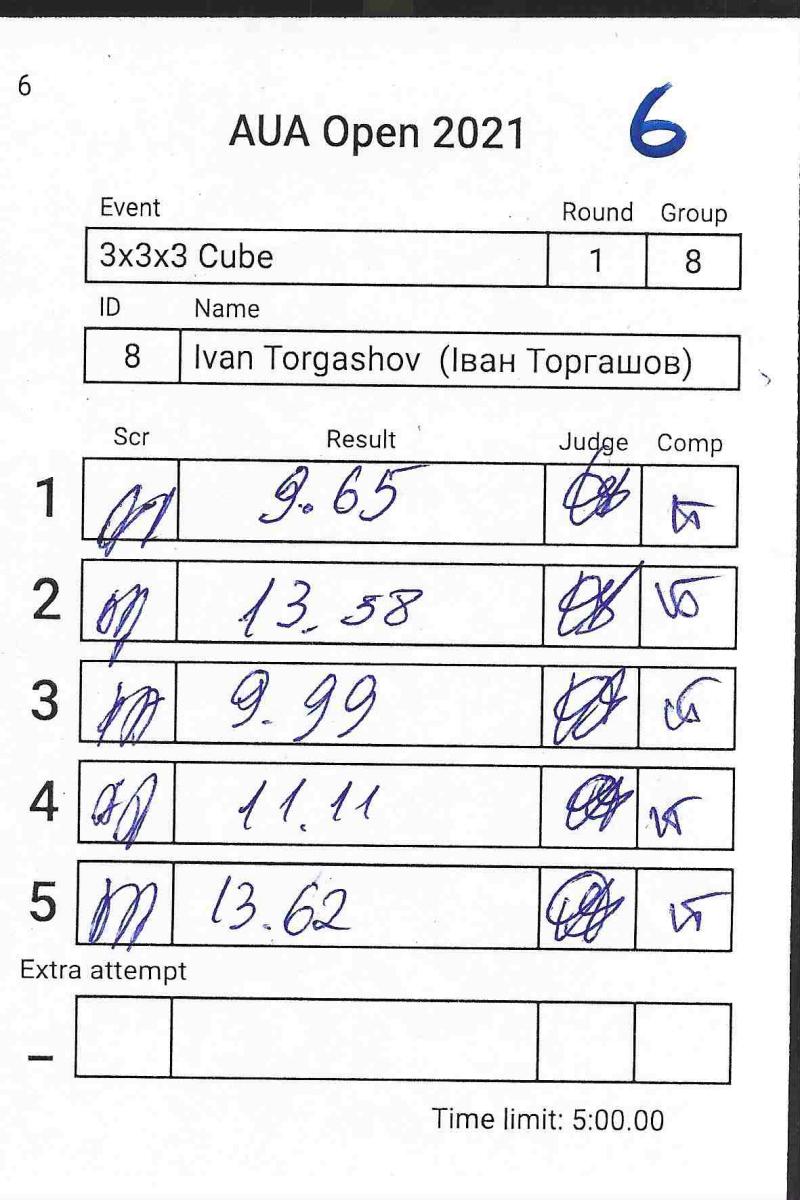 6
AUA Open 2021
6
Event Round Group
3x3x3 Cube 1 8
ID Name
8 Ivan Torgashov (Іван Торгашов)
Scr Result Judge Comp
1 9.65
2 13.58
3 9.99
4 11.11
5 13.62
Extra attempt
_
Time limit: 5:00.00